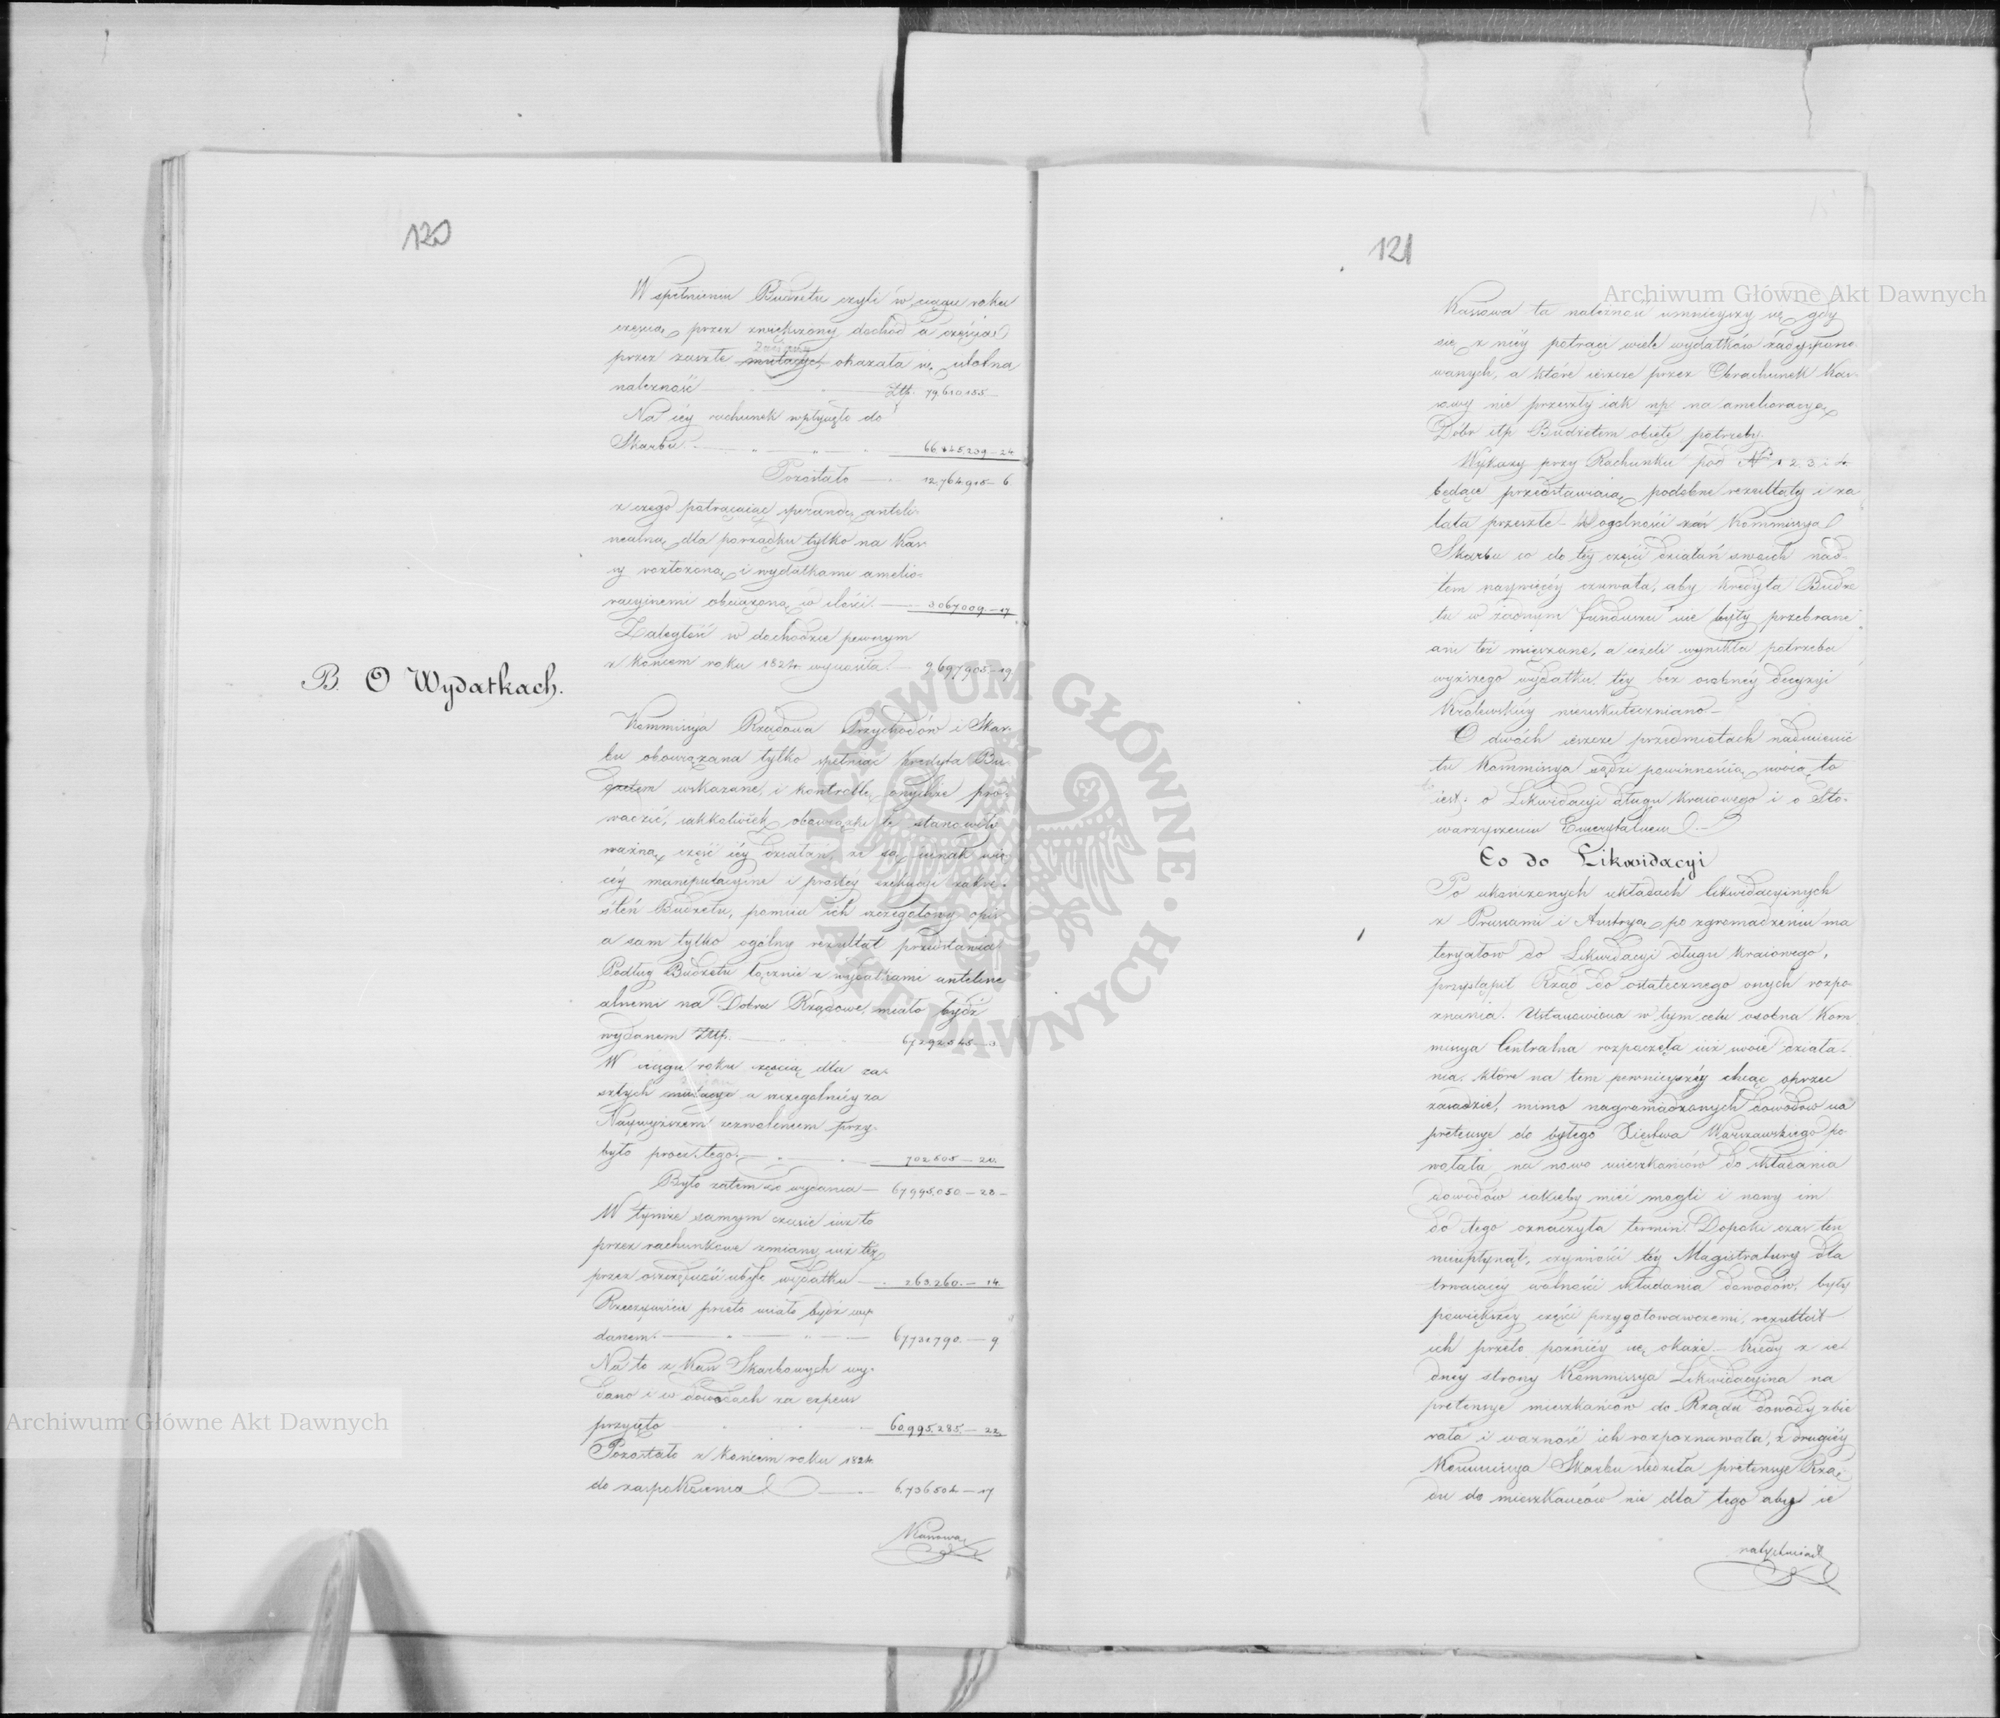 120
W spełnieniu Budżetu czyli w ciągu roku
częścią przez zwiększony dochód a częścią
przez zaszłe mutacye zmiany okazała się ubolna
należność Złp. 79610155
Na téy rachunek wpłynęło do
Skarbu 66845239-24
Pozostało 12,764,915-6
z czego potrącaiąc sperandę anteli-
nealną dla porządku tylko na Kas-
sy roztożoną i wydatkami amelio-
racyinemi obciążoną w ilości 3067009.-17
Zaległość w dochodzie pewnym
z końcem roku 1824 wynosiła 9,697,905-19
B. O Wydatkach.
Kommissya Rządowa Przychodów i Skar-
bu obowiązana tylko spełniać kredyta Bu-
dżetem wskazane, i kontrollę onychże pro-
wadzić, iakkolwiek obowiązki te stanowiły
ważną część iéy działań, że są iednak wię-
céy manipulacyine i prostéy exekucyi zakre-
śleń Budżetu, pomiia ich szczegółowy opis
a sam tylko ogólny rezultat przedstawia
Podług Budżetu łącznie z wydatkami antelinе-
alnemi na Dobra Rządowe miało bydź
wydanem Złp. 67292545-3
W ciągu roku częścią dla za-
szłych mutacyi zmian a szczególniéy za
Naywyższem zezwoleniem przy-
było prócz tego 702505-20.
Było zatem do wydania 67995,050-23-
W tymże samym czasie iuż to
przez rachunkowe zmiany iuż też
przez oszczędność ubyło wydatku 263.260.-14
Rzeczywiście przeto miało bydź wy-
danem 67731790.-9
Na to z Kass Skarbowych wy-
dano i w dowodach za expens
przyięto 60.995.285.-22
Pozostało z końcem roku 1824
do zaspokoienia 6,736504-17
Kassowa
121
Kassowa ta należność umnieyszy się gdy
się z niéy potrąci wiele wydatków zadyspono-
wanych, a które ieszcze przez Obrachunek Kas-
sowy nie przeszły iak np. na amelioracye
Dóbr itp Budżetem obięte potrzeby.
Wykazy przy Rachunku pod Nr 1 2 3 i 4
będące przedstawiaią podobne rezultaty i za
lata przeszłe. W ogólności zaś Kommissya
Skarbu co do téy części działań swoich nad
tem naywięcéy czuwała, aby kredyta Budże-
tu w żadnym funduszu nie były przebrane
ani też mięszane, a ieżeli wynikła potrzeba
wyższego wydatku, téy bez osobnéy decyzyi
Królewskiéy nieuskuteczniano.
O dwóch ieszcze przedmiotach nadmienić
tu Kommissya sądzi powinnością swoią to
iest: o Likwidacyi długu kraiowego i o Sto-
warzyszeniu Emerytalnem.
Co do Likwidacyi
Po ukończonych układach likwidacyinych
z Prusami i Austryą, po zgromadzeniu ma
teryałów do Likwidacyi długu kraiowego,
przystąpił Rząd do ostatecznego onych rozpo-
znania. Ustanowiona w tym celu osobna Kom
missya Centralna rozpoczęła iuż swoie działa-
nia, które na tem pewnieyszéy chcąc oprzeć
zasadzie, mimo nagromadzonych dowodów na
pretensye do byłego Xięstwa Warszawskiego po-
wołała na nowo mieszkańców do składania
dowodów iakieby mieć mogli i nowy im
do tego oznaczyła termin. Dopóki czas ten
nieupłynął, czynności téy Magistratury dla
trwaiącéy wolności składania dowodów, były
powiększéy części przygotowawczemi, rezultat
ich przeto późniéy się okaże. Kiedy z ie-
dnéy strony Kommissya Likwidacyina na
pretensye mieszkańców do Rządu dowody zbie
rała i ważność ich rozpoznawała, z drugiéy
Kommissya Skarbu śledziła pretensye Rzą-
du do mieszkańców nie dla tego aby ie
natychmiast
Archiwum Główne Akt Dawnych
Archiwum Główne Akt Dawnych
ARCHIWUM GŁÓWNE AKT DAWNYCH